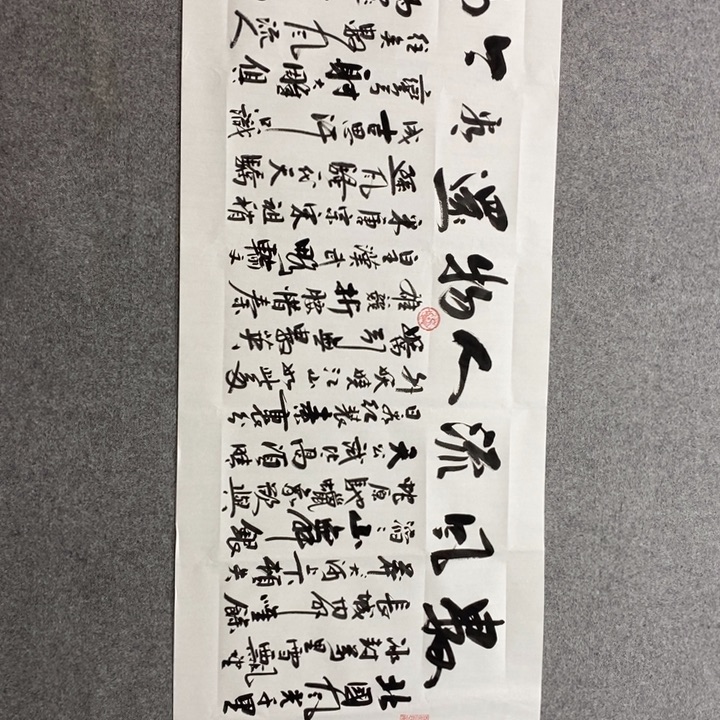 數風流人物還看今
北國風光千里
冰封萬里雪飄望
長城內外惟餘
莽莽大河上下頓失
滔滔山舞銀
蛇原馳蠟象欲與
天公試比高須晴
日看紅裝素裹分
外妖嬈江山如此多
嬌引無數英
雄競折腰惜秦
皇漢武略輸文
采唐宗宋祖稍
遜風騷一代天驕
成吉思汗只識
彎弓射大雕俱
往矣數風流人
物